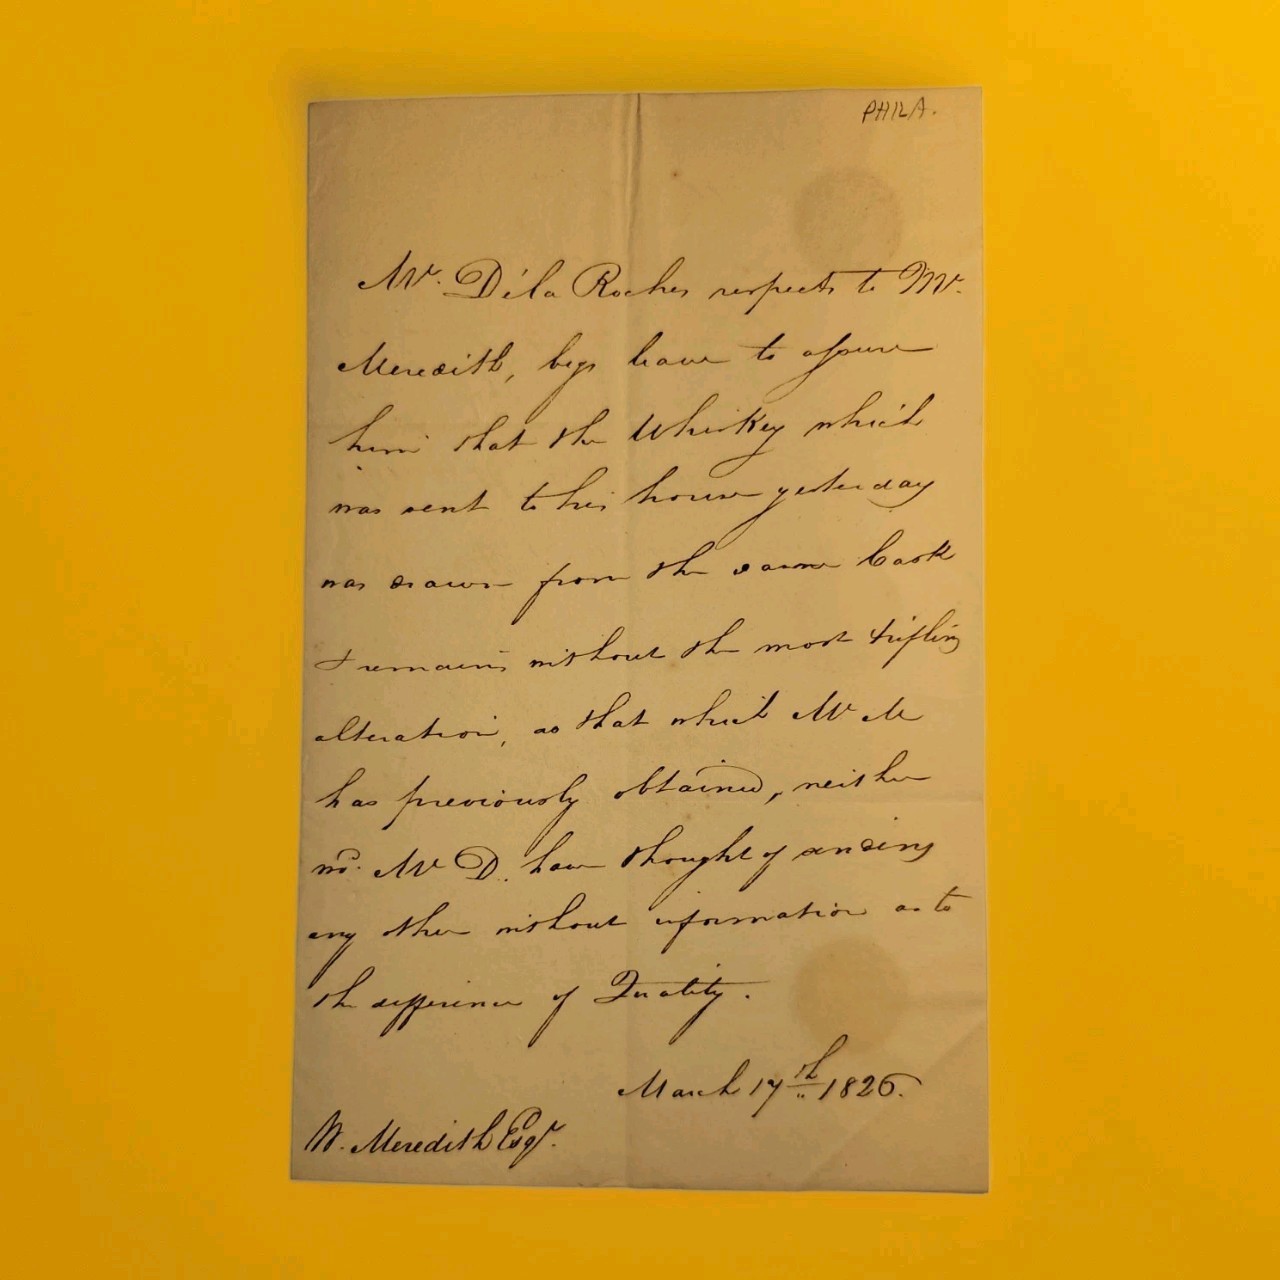 PHILA.
Mr. De'la Roches respects to Mr.
Meredith, begs leave to assure
him that the Whiskey which
was sent to his house yesterday
was drawn from the same Cask
& remains without the most trifling
alteration, as that which Mr M
has previously obtained, neither
wd. Mr D. have thought of sending
any other without information as to
the difference of Quality.
March 17th 1826.
W. Meredith Esqr.